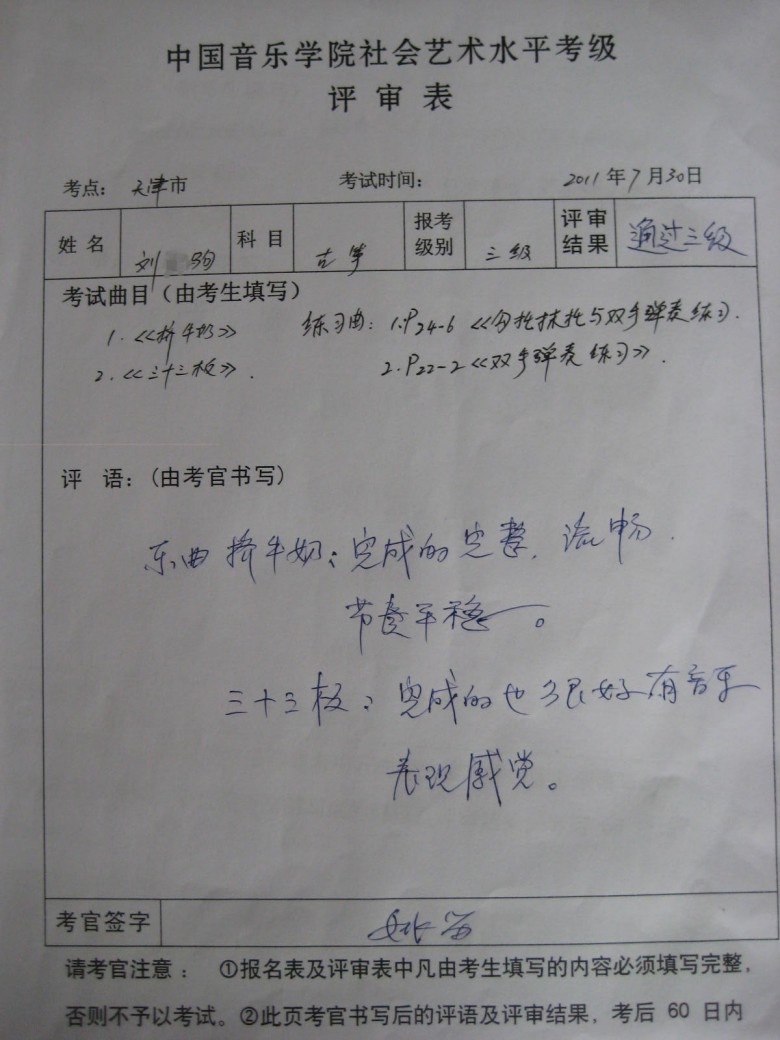 中国音乐学院社会艺术水平考级
评审表
考点：天津市 考试时间： 2011年7月30日
姓名 刘 驹 科目 古筝 报考级别 三级 评审结果 通过三级
考试曲目（由考生填写）
1.《挤牛奶》 练习曲：1.P24-6《勾托抹托与双手弹奏练习.
2.《三十三板》. 2.P22-2《双手弹奏练习》.
评 语：（由考官书写）
乐曲挤牛奶：完成的完整，流畅.
节奏平稳。
三十三板：完成的也很好有音乐
表现感觉。
考官签字
请考官注意： ①报名表及评审表中凡由考生填写的内容必须填写完整，
否则不予以考试。②此页考官书写后的评语及评审结果，考后 60 日内